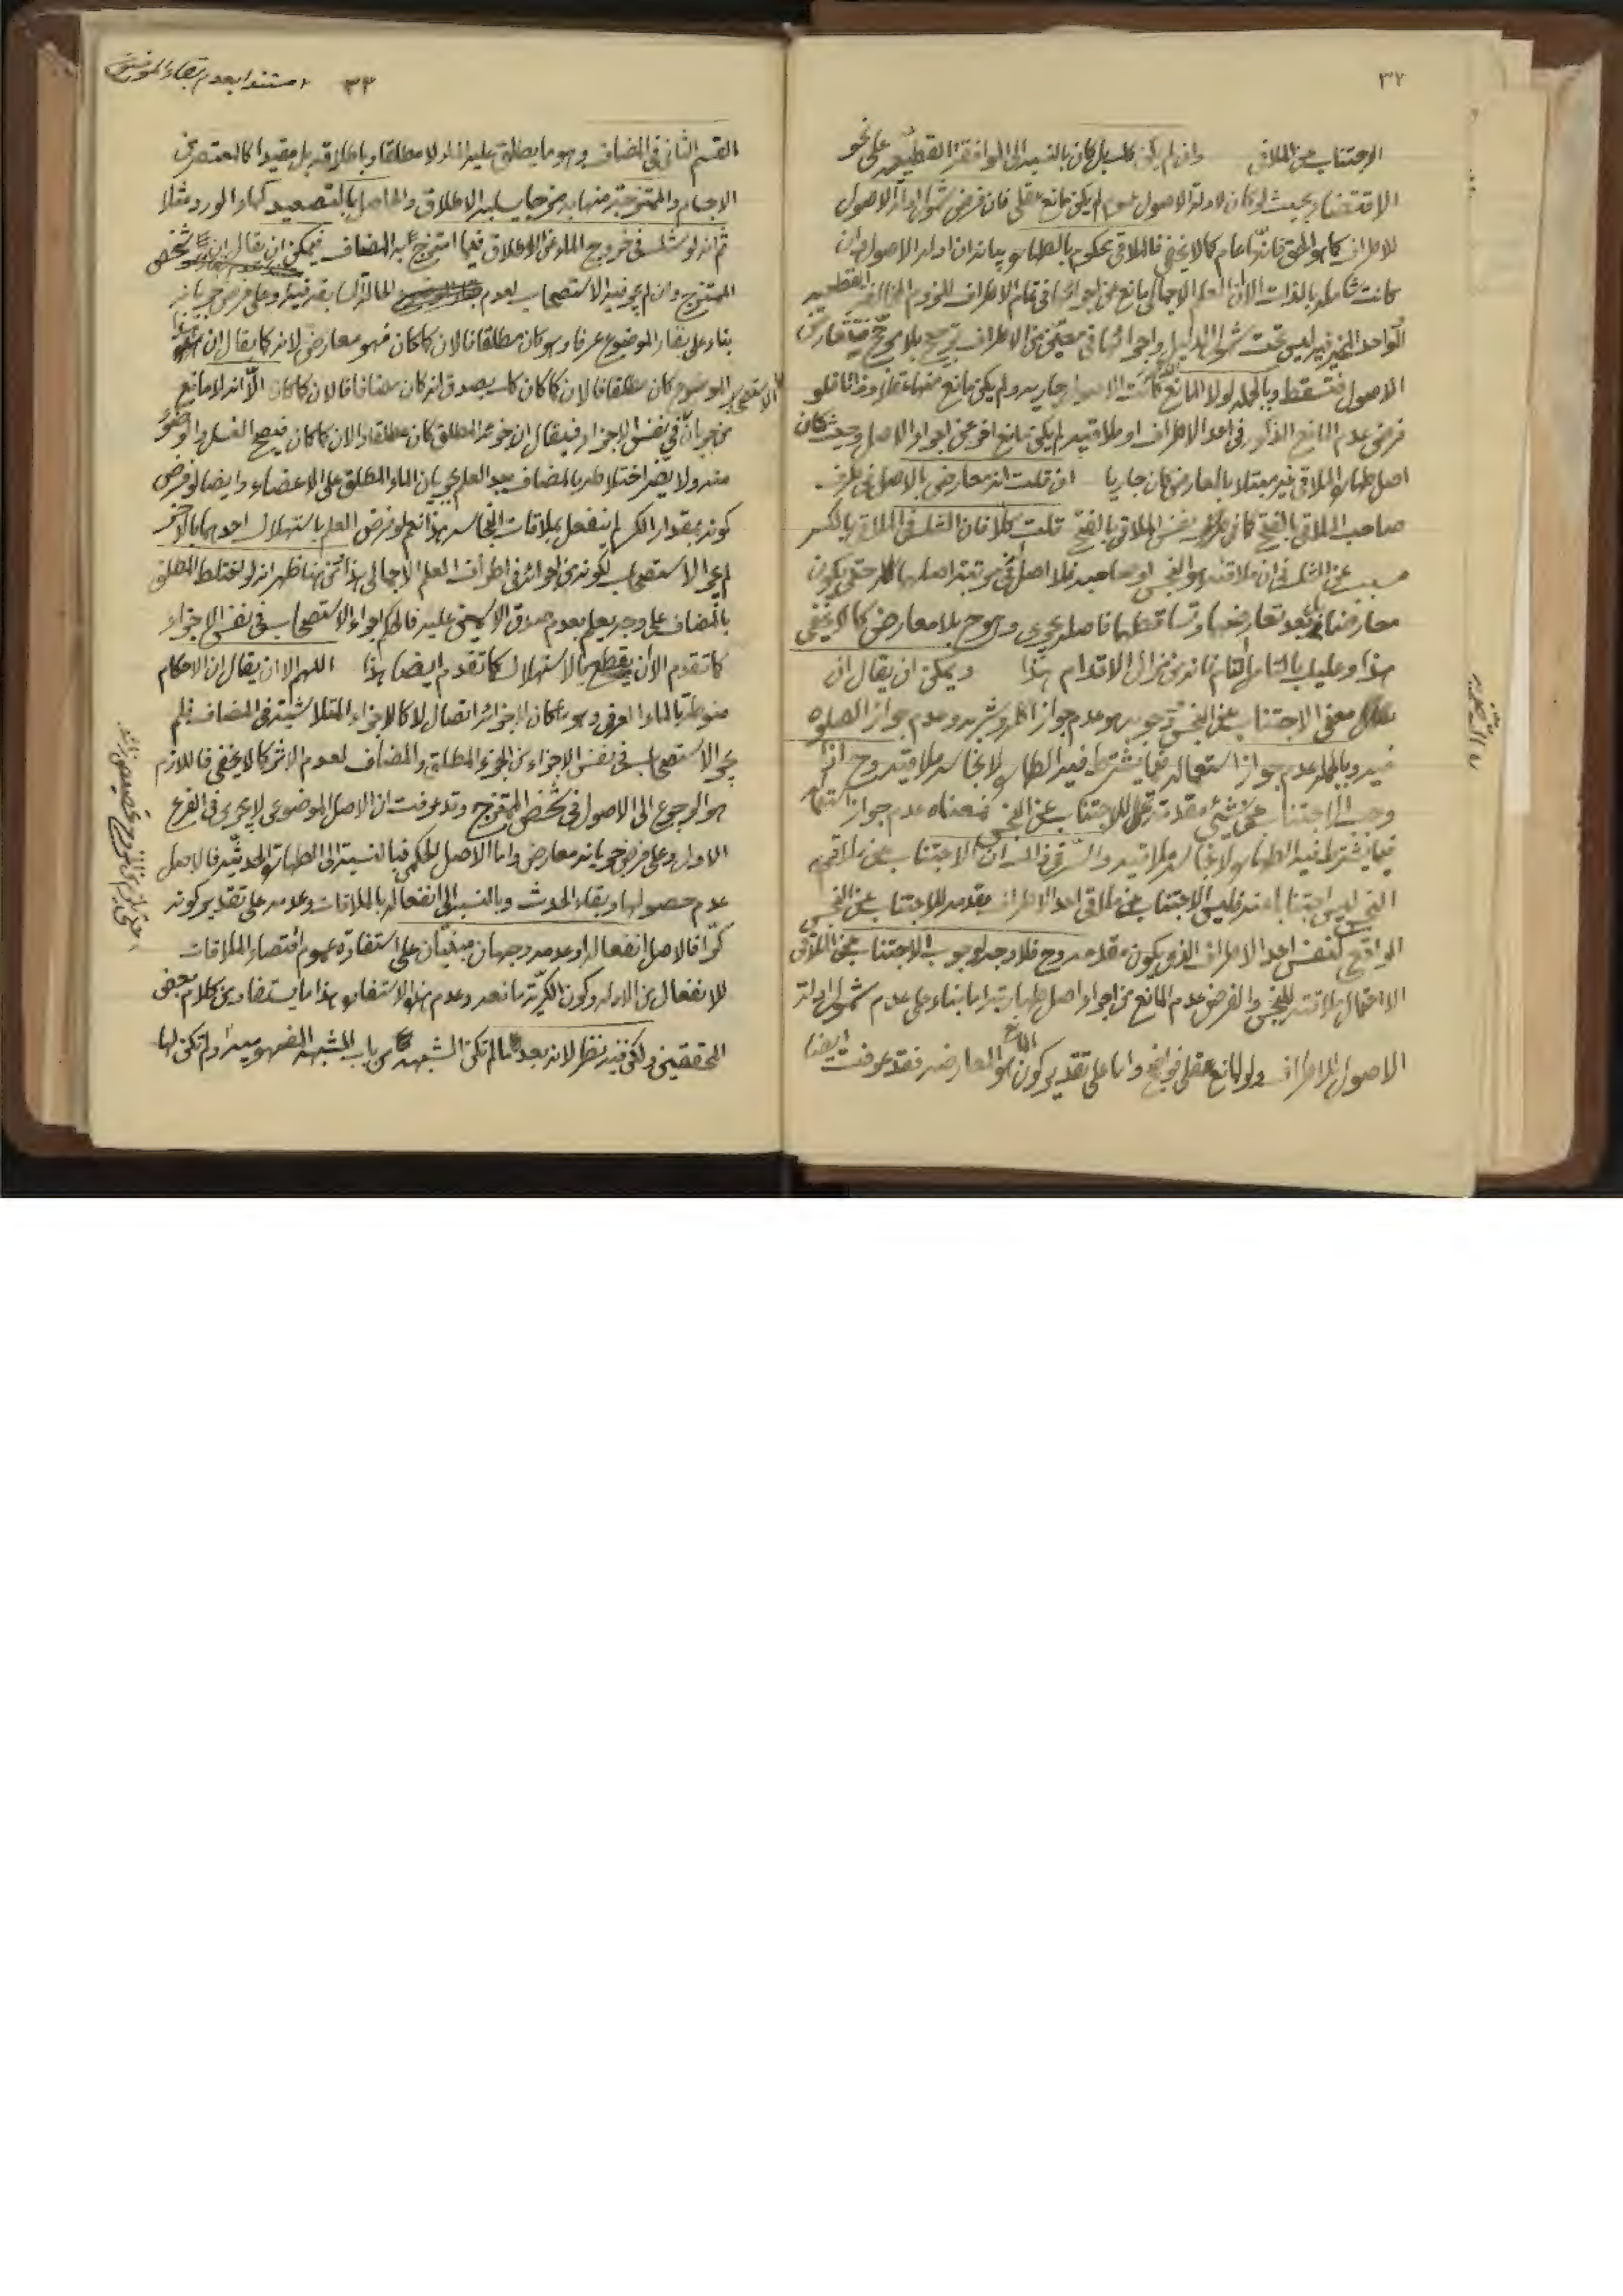 ٣٢
الاجتناب عن الملاقي وان لم يكن كك بل كان بالنسبة الى الموافقة القطعية على نحو
الاقتضاء بحيث لو كان لادلة الاصول عموم لم يكن مانع عقلي فان فرض شمول ادلة الاصول
للاطراف كما هو الحق فانه عام كما لا يخفى فالملاقي محكوم بالطهارة بيانه ان ادلة الاصول وان
كانت شاملة بالذات الا ان العلم الاجمالي مانع عن اجرائها في تمام الاطراف للزوم المخالفة القطعية
الواحد المخير فيه ليس تحت شمول الدليل واجرائها في معين من الاطراف ترجيح بلا مرجح فيتعارض
الاصول فتسقط وبالجملة لولا المانع كانت الاصول جارية ولم يكن مانع
فرض عدم المانع المذكور في احد الاطراف او ملاقيه لم يكن مانع اخر عن اجراء الاصل وحيث كان
اصل طهارة الملاقي غير مبتلا بالمعارض كان جاريا ان قلت انه معارض بالاصل في طرف
صاحب الملاقى بالفتح كما في نفس الملاقى بالفتح قلت كلا فان الشك في الملاقي بالكسر
مسبب عن الشك في ان ملاقيه هو النجس او صاحبه فلا اصل في مرتبة اصلهما حتى يكون
معارضا له بل بعد تعارضهما وتساقطهما فاصله يجري وهو ح بلا معارض كما لا يخفى
هذا وعليك بالتامل التام فانه من مزال الاقدام هذا ويمكن ان يقال ان
معنى الاجتناب عن النجس وجوبه هو عدم جواز اكله وشربه وعدم جواز الصلوة
فيه وبالجملة عدم جواز استعماله فيما يشترط فيه الطهارة لا نجاسة ملاقيه وح اذا
وجب الاجتناب عن شيء مقدمة للاجتناب عن النجس فمعناه عدم جواز استعماله
فيما يشترط فيه الطهارة لا نجاسة ملاقيه والسر في ذلك ان الاجتناب عن ملاقي
النجس ليس اجتنابا عنه فليس الاجتناب عن ملاقي احد الاطراف مقدمة للاجتناب عن النجس
الواقع كنفس احد الاطراف الذي يكون مقدمة وح فلا وجه لوجوب الاجتناب عن الملاقي
الا احتمال ملاقيه للنجس والفرض عدم المانع من اجراء اصل طهارته اما بناء على عدم شمول ادلة
الاصول للاطراف ولو لمانع عقلي فواضح واما على تقدير كون المانع هو المعارضة فقد عرفت ايضا
٣٣ مستندا بعدم بقاء الموضوع
القسم الثاني في المضاف وهو ما يطلق عليه الماء لا مطلقا وباطلاقه بل مقيدا كالمعتصر من
الاجسام والممتزجة منها به مزجا يسلبه الاطلاق والحاصل بالتصعيد كماء الورد مثلا
ثم انه لو شك في خروج الماء عن الاطلاق فيما امتزج به المضاف فيمكن ان يقال ان شخص
الممتزج وان لم يجر فيه الاستصحاب لعدم الحالة السابقة فيه وعلى فرض جريانه
بناء على بقاء الموضوع عرفا وهو كان مطلقا فالان كما كان فهو معارض لانه كما يقال ان هذا
الموضوع كان مطلقا فالان كما كان كك يصدق انه كان مضافا فالان كما كان الا انه لا مانع
من جريانه في نفس الاجزاء فيقال ان جزء المطلق كان مطلقا والان كما كان فيصح الغسل والوضوء
منه ولا يضر اختلاطه بالمضاف بعد العلم بجريان الماء المطلق على الاعضاء وايضا لو فرض
كونه بمقدار الكر لم ينفعل بملاقات النجاسة هذا نعم لو فرض العلم باستهلاك احدهما بالاخر
لم يجر الاستصحاب لكونه من اجرائه في اطراف العلم الاجمالي هذا ومن هنا ظهر انه لو اختلط المطلق
بالمضاف على وجه يعلم بعدم صدق الاسمين عليه فالحكم اجراء الاستصحاب في نفس الاجزاء
كما تقدم الا ان يقطع بالاستهلاك كما تقدم ايضا هذا اللهم الا ان يقال ان الاحكام
منوطة بالماء العرفي وهو ما كان لاجزائه اتصال لا كالاجزاء المتلاشية في المضاف فلم
يجر الاستصحاب في نفس الاجزاء من الجزء المطلق والمضاف لعدم الاثر كما لا يخفى فاللازم
هو الرجوع الى الاصول في شخص الممتزج وقد عرفت ان الاصل الموضوعي لا يجري في الفرع
الاول وعلى فرض جريانه معارض واما الاصل الحكمي فبالنسبة الى الطهارة الحدثية فالاصل
عدم حصولها وبقاء الحدث وبالنسبة الى انفعاله بالملاقات وعدمه على تقدير كونه
كرا فالاصل انفعاله او عدمه وجهان مبنيان على استفادة عموم اقتضاء الملاقات
للانفعال من الادلة وكون الكرية مانعة وعدم هذه الاستفادة هذا ما يستفاد من كلام بعض
المحققين ولكن فيه نظر لانه بعد ما لم تكن الشبهة من باب الشبهة المفهومية ولم تكن لها